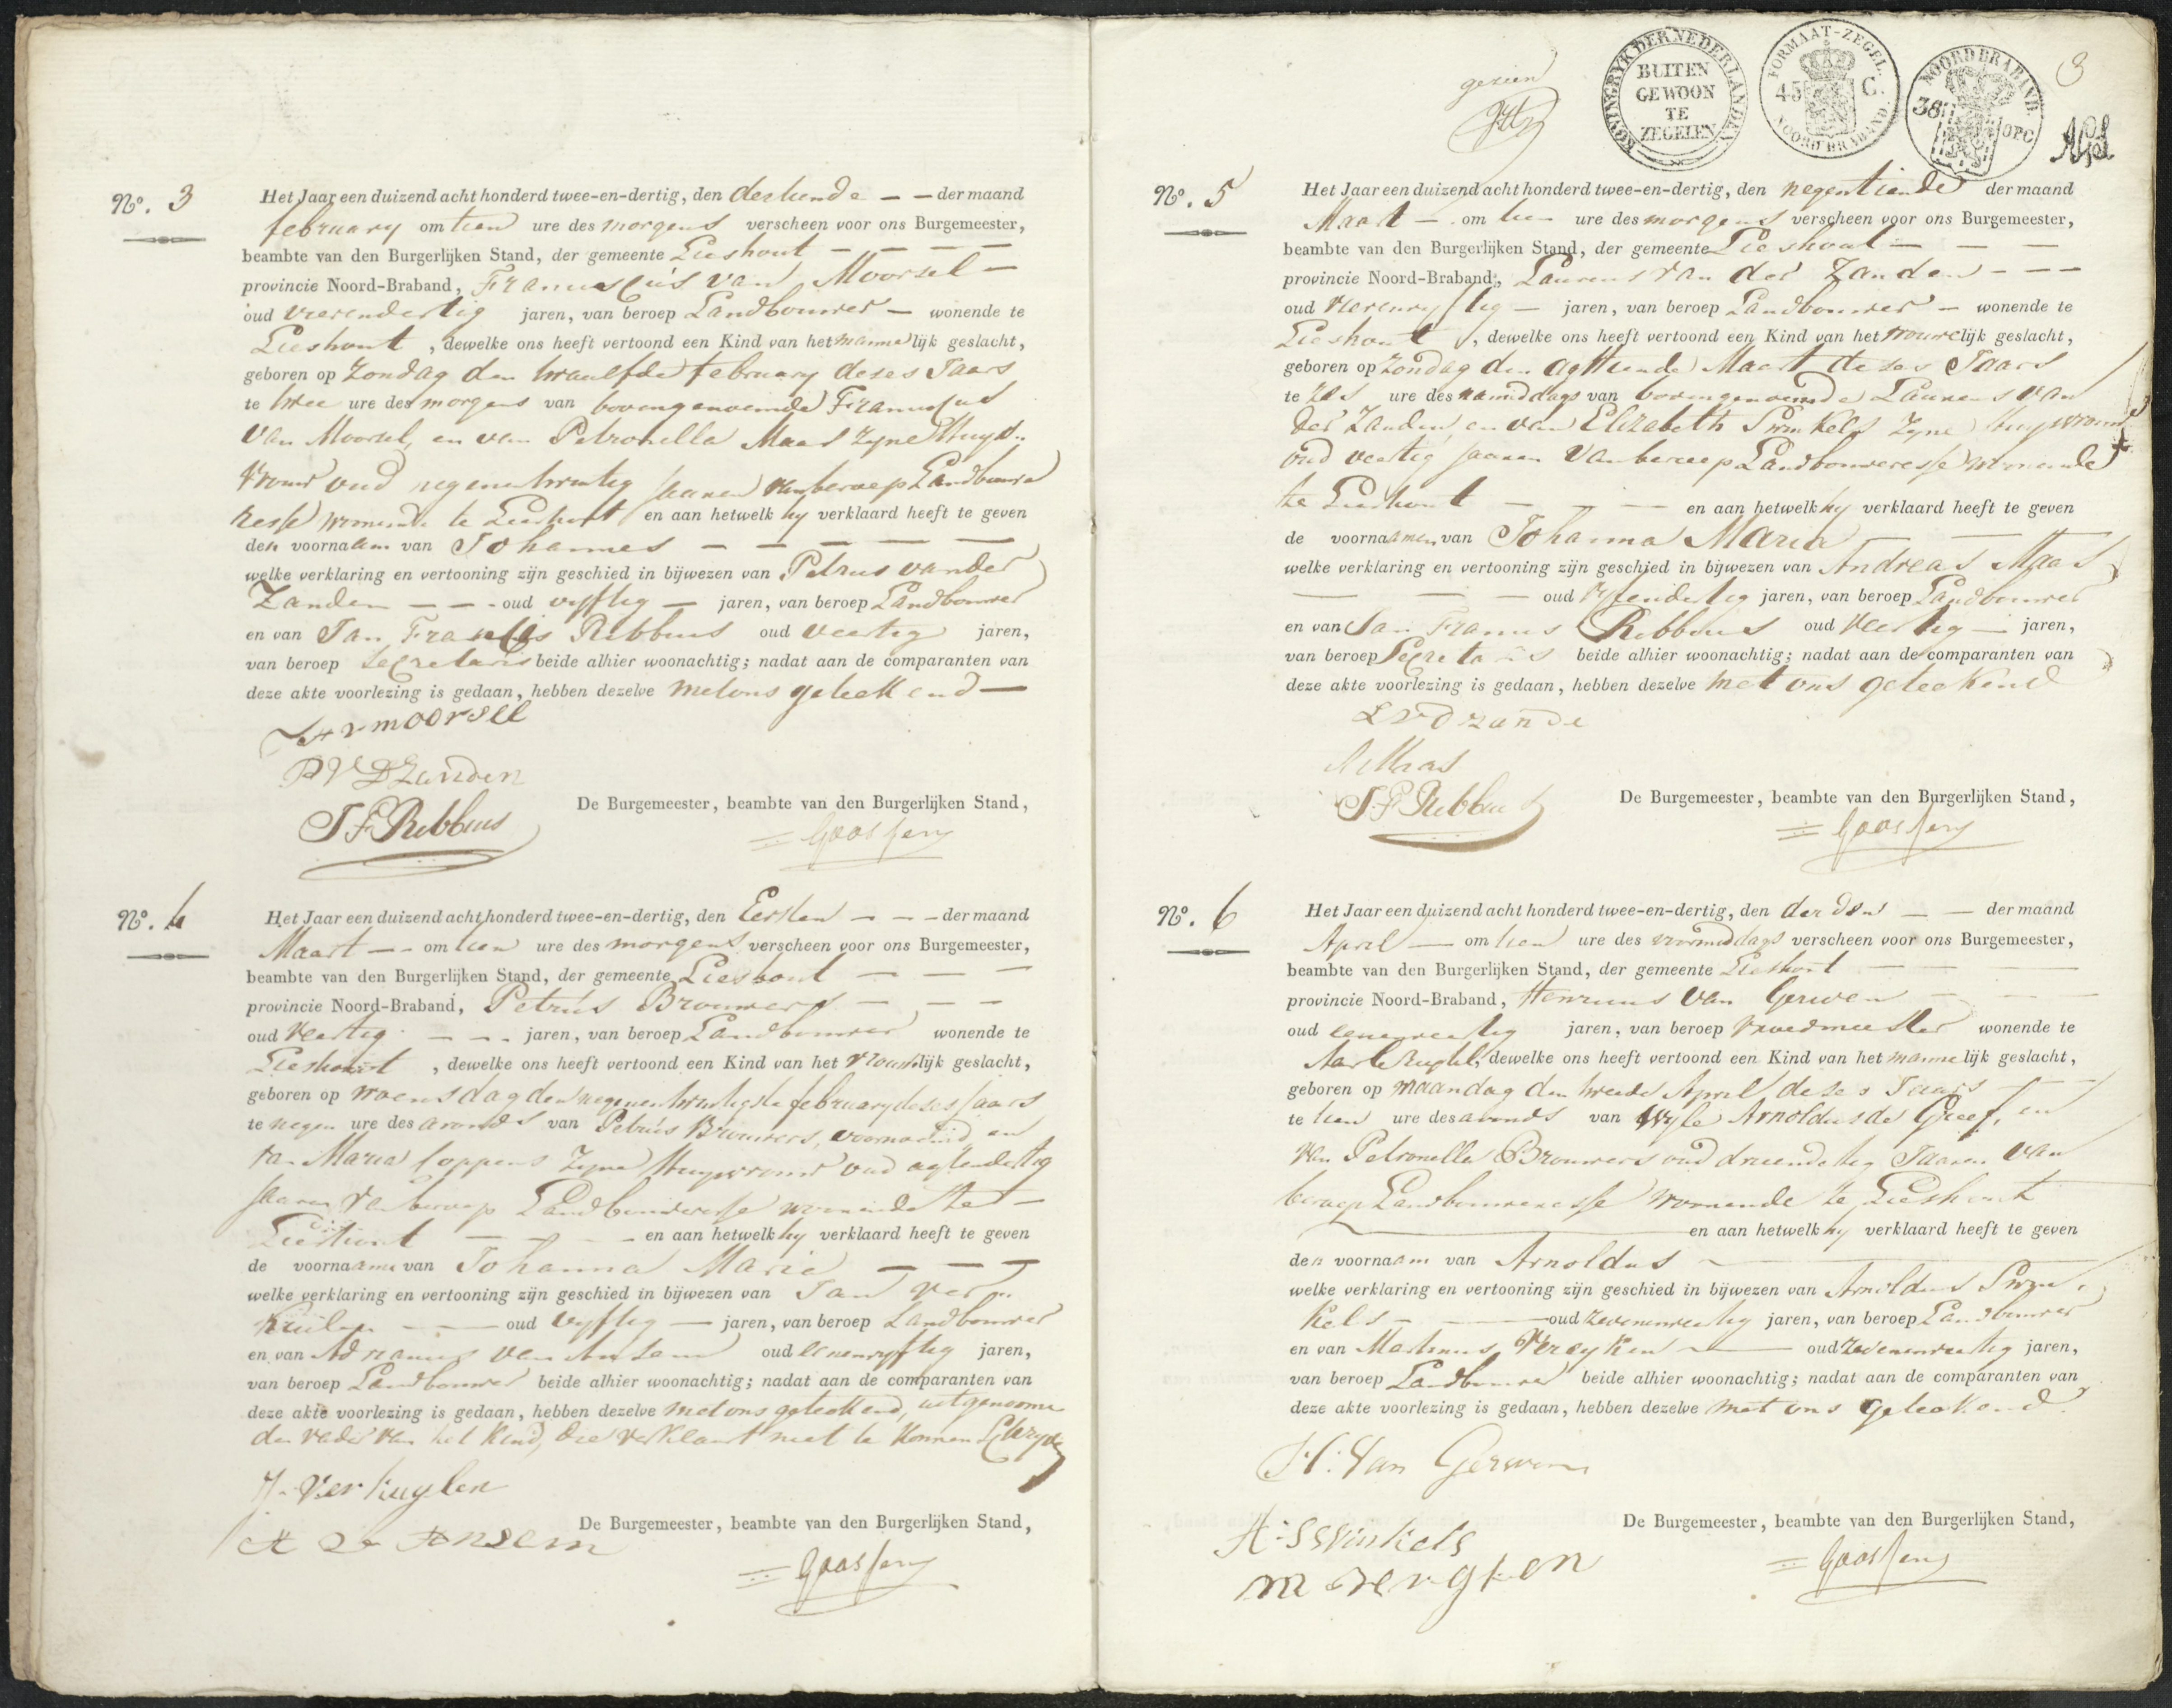 No. 3
Het Jaar een duizend acht honderd twee-en-dertig, den dertiende — — der maand
february om tien ure des morgens verscheen voor ons Burgemeester,
beambte van den Burgerlijken Stand, der gemeente Lieshout — — — —
provincie Noord-Braband, Franciscus van Moorsel —
oud vierendertig jaren, van beroep Landbouwer — wonende te
Lieshout, dewelke ons heeft vertoond een Kind van het mannelijk geslacht,
geboren op Zondag den twaelfde february deses Jaars
te twee ure des morgens van bovengenoemde Franciscus
van Moorsel, en van Petronella Maas zyne Huys..
vrouw oud negenentwintig jaaren van beroep Landbouwe
resse wonende te Lieshout en aan hetwelk hy verklaard heeft te geven
den voornaam van Johannes — — — — —
welke verklaring en vertooning zijn geschied in bijwezen van Petrus vander
Zanden — — - oud vyftig — jaren, van beroep Landbouwer
en van Jan Francis Ribbius oud veertig jaren,
van beroep Secretaris beide alhier woonachtig; nadat aan de comparanten van
deze akte voorlezing is gedaan, hebben dezelve met ons geteekend —
v moorsel
P V D Zanden
J F Ribbius
De Burgemeester, beambte van den Burgerlijken Stand,
Goossens
No. 4
Het Jaar een duizend acht honderd twee-en-dertig, den Eersten — — - der maand
Maart — - om tien ure des morgens verscheen voor ons Burgemeester,
beambte van den Burgerlijken Stand, der gemeente Lieshout — — —
provincie Noord-Braband, Petrus Brouwers — — —
oud veertig — - - jaren, van beroep Landbouwer wonende te
Lieshout, dewelke ons heeft vertoond een Kind van het vrouwelijk geslacht,
geboren op woensdag den negenentwintigste february deses jaars
te negen ure des avonds van Petrus Brouwers, voornoemd en
van Maria Coppens zyne Huysvrouw oud agtendertig
jaaren van beroep Landbouweresse wonende te —
Lieshout — — - - en aan hetwelk hy verklaard heeft te geven
de voornaame van Johanna Maria — — —
welke verklaring en vertooning zijn geschied in bijwezen van Jan Ver..
kuilen — — oud vyftig — jaren, van beroep Landbouwer
en van Adrianus van Ansem oud eenenvyftig jaren,
van beroep Landbouwer beide alhier woonachtig; nadat aan de comparanten van
deze akte voorlezing is gedaan, hebben dezelve met ons geteekend, uitgenoome
den vader van het Kind, die verklaart niet te konnen Schryve
Verkuylen
Ansem
De Burgemeester, beambte van den Burgerlijken Stand,
Goossens
gezien
KONINGRYK DER NEDERLANDEN
BUITEN
GEWOON
TE
ZEGELEN
FORMAAT-ZEGEL.
45 C.
NOORD BRABAND.
NOORD BRABAND.
38 OPC
3
No. 5
Het Jaar een duizend acht honderd twee-en-dertig, den negentiende der maand
Maart — om tien ure des morgens verscheen voor ons Burgemeester,
beambte van den Burgerlijken Stand, der gemeente Lieshout — — —
provincie Noord-Braband, Laurens van der Zanden - — —
oud vierenvyftig — jaren, van beroep Landbouwer — wonende te
Lieshout, dewelke ons heeft vertoond een Kind van het vrouwelijk geslacht,
geboren op Zondag den agttiende Maart deses Jaars
te zes ure des namiddags van bovengenoemde Laurens van
der Zanden, en van Elizabeth Swinkels zyne Huysvrouw
oud veertig jaaren van beroep Landbouweresse wonende
te Lieshout — — — en aan hetwelk hy verklaard heeft te geven
de voornaamen van Johanna Maria — —
welke verklaring en vertooning zijn geschied in bijwezen van Andreas Maas
— — — oud vyfendertig jaren, van beroep Landbouwer
en van Jan Francis Ribbius oud veertig — jaren,
van beroep Secretaris beide alhier woonachtig; nadat aan de comparanten van
deze akte voorlezing is gedaan, hebben dezelve met ons geteekend
L V D zande
A Maas
J F Ribbius
De Burgemeester, beambte van den Burgerlijken Stand,
Goossens
No. 6
Het Jaar een duizend acht honderd twee-en-dertig, den derden — — der maand
April — om tien ure des voormiddags verscheen voor ons Burgemeester,
beambte van den Burgerlijken Stand, der gemeente Lieshout — — —
provincie Noord-Braband, Henricus van Gerwen — — —
oud eenenveertig jaren, van beroep vroedmeester wonende te
Aarle Rixtel, dewelke ons heeft vertoond een Kind van het mannelijk geslacht,
geboren op maandag den tweede April deses Jaars — —
te tien ure des avonds van wyle Arnoldus de Greef, en
van Petronella Brouwers oud drieendertig Jaaren van
beroep Landbouweresse wonende te Lieshout
en aan hetwelk hy verklaard heeft te geven
den voornaam van Arnoldus —
welke verklaring en vertooning zijn geschied in bijwezen van Arnoldus Swin.
kels — — oud zevenenveertig jaren, van beroep Landbouwer
en van Martinus Vereyken — oud zevenenveertig jaren,
van beroep Landbouwer beide alhier woonachtig; nadat aan de comparanten van
deze akte voorlezing is gedaan, hebben dezelve met ons geteekend.
H. Van Gerwen
A. Swinkels
m vereyken
De Burgemeester, beambte van den Burgerlijken Stand,
Goossens